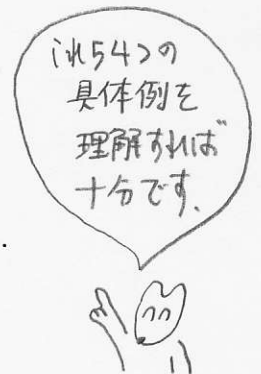 これら4つの
具体例を
理解すれば
十分です.